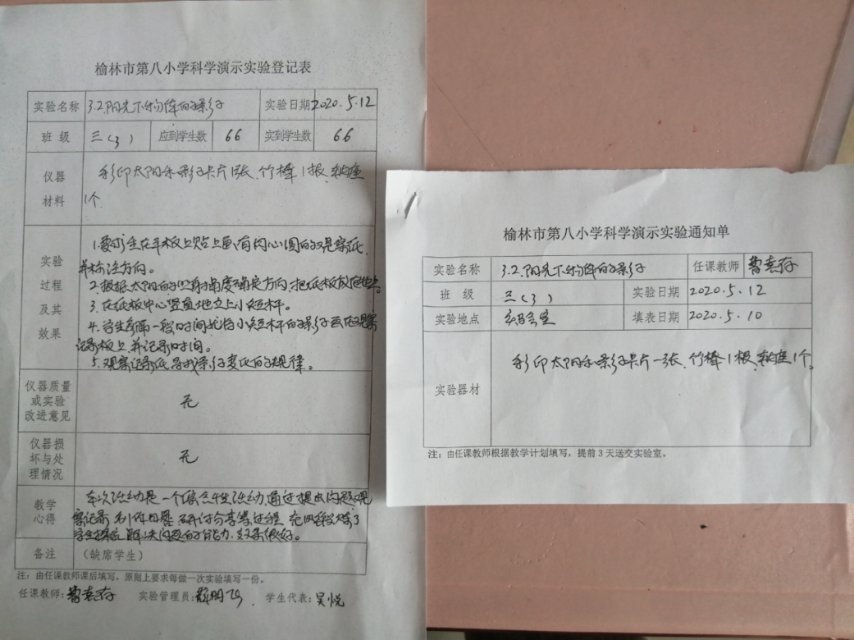 榆林市第八小学科学演示实验登记表
实验名称 3.2.阳光下物体的影子 实验日期 2020.5.12
班 级 三(3) 应到学生数 66 实到学生数 66
仪器材料 彩印太阳和影子卡片1张、竹棒1根、
1个
实验过程及其效果
1.要求学生在平板上贴上画有同心圆的观察纸,
并标注方向。
2.根据太阳的方向,把纸板放
3.在纸板中心竖直地立上小短杆。
4.学生每隔一段时间就将小短杆的影子画在观察
记录板上,并记录时间。
5.观察记录纸,寻找影子变化的规律。
仪器质量或实验改进意见 无
仪器损坏与处理情况 无
教学心得 本次活动是一个综合性活动,通过提出问题、观
察记录、研讨分享等过程,充分锻炼了
学生解决问题的能力,效果很好。
备注 (缺席学生)
注:由任课教师课后填写,原则上要求每做一次实验填写一份。
任课教师: 实验管理员: 学生代表:吴悦
榆林市第八小学科学演示实验通知单
实验名称 3.2.阳光下物体的影子 任课教师
班 级 三(3) 实验日期 2020.5.12
实验地点 实验室 填表日期 2020.5.10
实验器材 彩印太阳和影子卡片一张、竹棒1根、1个。
注:由任课教师根据教学计划填写,提前3天送交实验室。